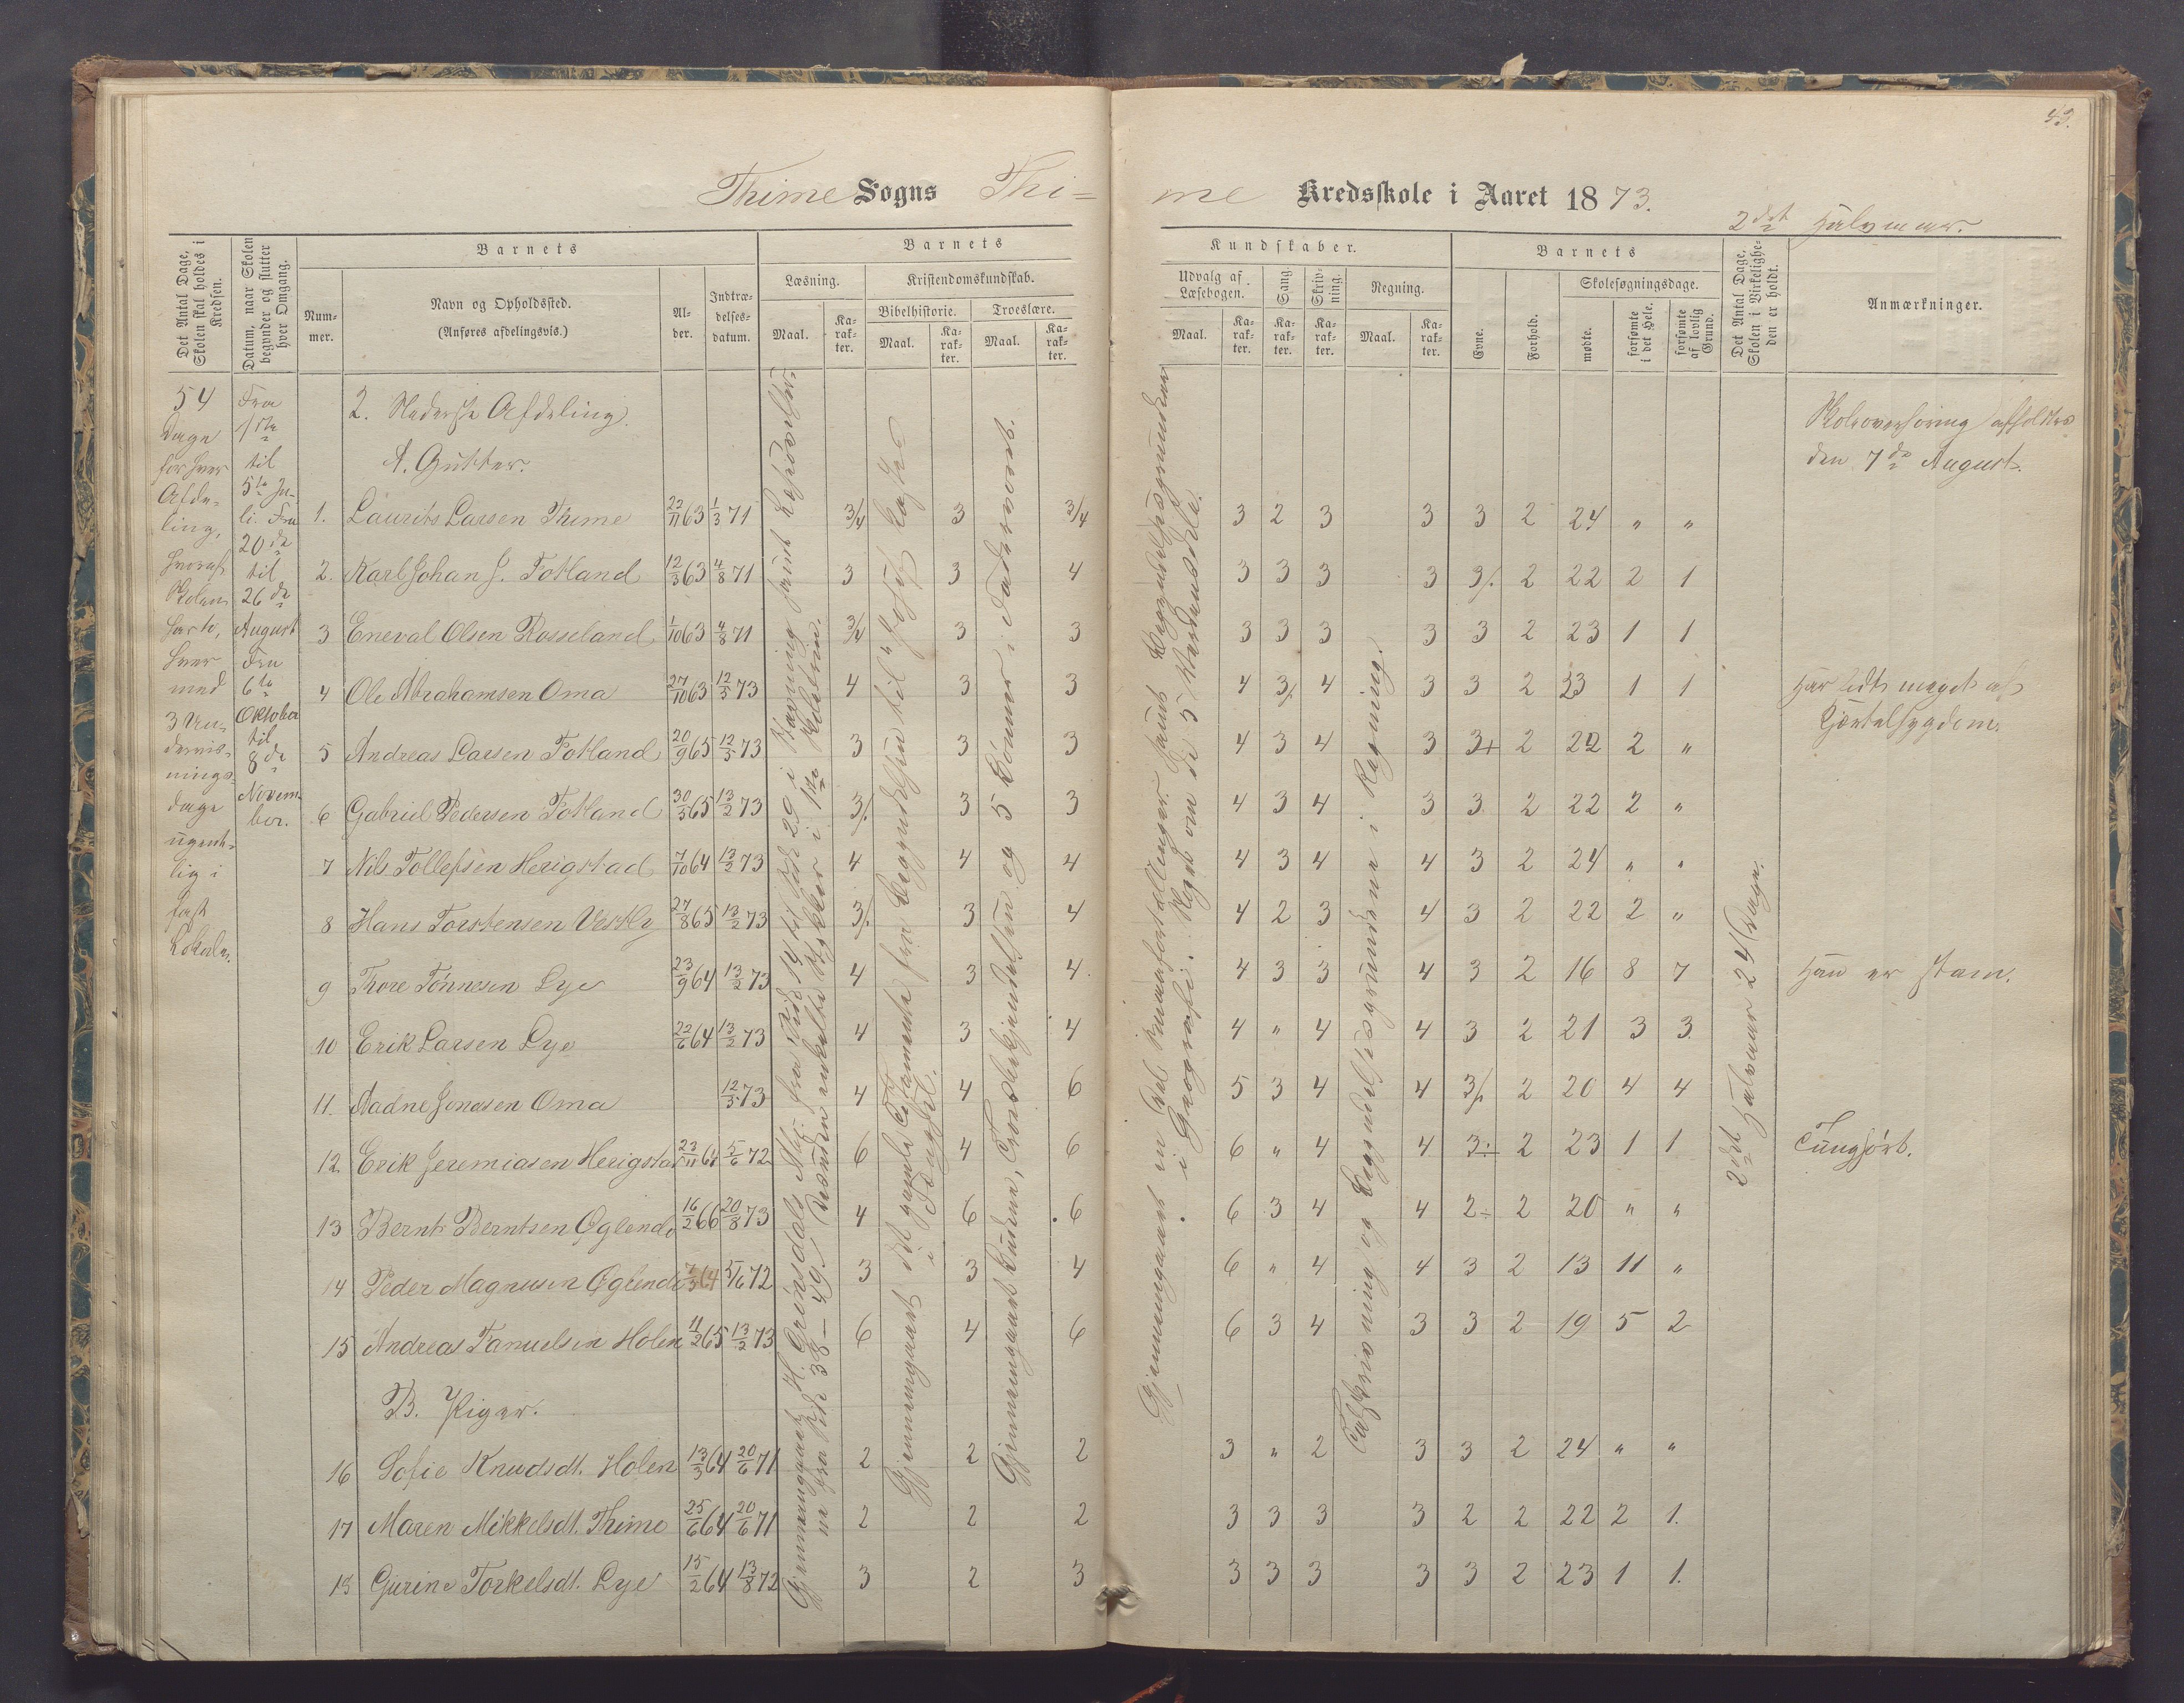 43.
Thime Sogns Thi= me Kredsskole i Aaret 1873.
2det Halvaar.
Det Antal Dage, Skolen skal holdes i Kredsen.
Datum, naar Skolen begynder og slutter hver Omgang.
Barnets
Num-mer.
Navn og Opholdssted.
(Anføres afdelingsvis.)
Al-der.
Indtræ-delses-datum.
Barnets
Læsning.
Maal.
Ka-rak-ter.
Kristendomskundskab.
Bibelhistorie.
Maal.
Ka-rak-ter.
Troeslære.
Maal.
Ka-rak-ter.
Kundskaber.
Udvalg af Læsebogen.
Maal.
Ka-rak-ter.
Sang.
Ka-rak-ter.
Skriv-ning.
Ka-rak-ter.
Regning.
Maal.
Ka-rak-ter.
Barnets
Evne.
Forhold.
Skolesøgningsdage.
mødte.
forsømte i det Hele.
forsømte af lovlig Grund.
Det Antal Dage, Skolen i Virkelighe-den er holdt.
Anmærkninger.
54
Dage
for hver
Afde-
ling,
hvoraf
Skolen
holdes
hver
med
3 Un-
dervis-
nings-
dage
ugent-
lig i
fast
Lokale.
Fra
1ste
til
5te Ju-
li. Fra
20de
til
26de
August
Fra
6te
Oktober
til
8de
Novem-
ber.
2. Nederste Afdeling.
A. Gutter.
Skoleoverhøring afholdtes
den 7de August.
1. Laurits Larsen Thime 22/11 63 1/3 71 3/4 3 3/4 3 2 3 3 3 2 24 " "
2. Karl Johan J. Fotland 12/3 63 4/8 71 3 3 4 3 3 3 3 3/. 2 22 2 1
3 Eneval Olsen Rosseland 1/10 63 4/8 71 3/4 3 3 3 3 3 3 3 2 23 1 1
4 Ole Abrahamsen Oma 27/10 63 12/3 73 4 3 3 4 3/. 4 3 3 2 23 1 1 Har lidt meget af
Kjertelsygdom.
5 Andreas Larsen Fotland 20/9 65 12/3 73 3 3 3 4 3 4 3 3+ 2 22 2 "
6 Gabriel Pedersen Fotland 30/3 65 13/2 73 3/. 3 3 4 3 4 3 3 2 22 2 "
7 Nils Tollefsen Herigstad 7/10 64 13/2 73 4 4 4 4 3 4 4 3 2 24 " "
8 Hans Torstensen Vestly 27/8 65 13/2 73 3/. 3 4 4 2 3 4 3 2 22 2 "
9 Thore Tönnesen Lye 23/9 64 13/2 73 4 3 4 4 3 3 4 3 2 16 8 7 Han er stam.
10 Erik Larsen Lye 22/6 64 13/2 73 4 3 4 4 " 4 4 3 2 21 3 3
11. Aadne Jonasen Oma 12/3 73 4 4 6 5 3 4 4 3/. 2 20 4 4
12 Erik Jeremiasen Herigstad 23/11 64 5/6 72 6 4 6 6 " 4 4 3÷ 2 23 1 1 Tunghørt.
13 Bernt Berntsen Øglend 16/2 66 20/8 73 4 6 6 6 3 4 4 2÷ 2 20 " "
14 Peder Magnusen Øglend 7/3 64 5/6 72 3 3 4 6 " 4 4 3 2 13 11 "
15 Andreas Samuelsen Holen 11/2 65 13/2 73 6 4 6 6 3 4 3 3 2 19 5 2
B. Piger.
16 Sofie Knudsdt. Holen 13/3 64 20/6 71 2 2 2 3 " 2 3 3 2 24 " "
17 Maren Mikkelsdt. Thime 25/6 64 20/6 71 2 2 2 3 3 3 3 2 2 22 2 1.
18 Gurine Torkelsdt. Lye 15/2 64 13/8 72 3 2 3 3 3 3 3 3 2 23 1 1.
Gjennemgaaet det gamle Testamente fra Begyndelsen til
Gjennemgaaet Budene, Troesbekjendelsen og 5 Bønner i Fadervoret.
Gjennemgaaet en Del Smaafortællinger samt Begyndelsesgrundene
i Geografi. Noget om de 5 Verdensdele.
Talskrivning og Begyndelsesgrundene i Regning.
2det Halvaar 24 Dage.